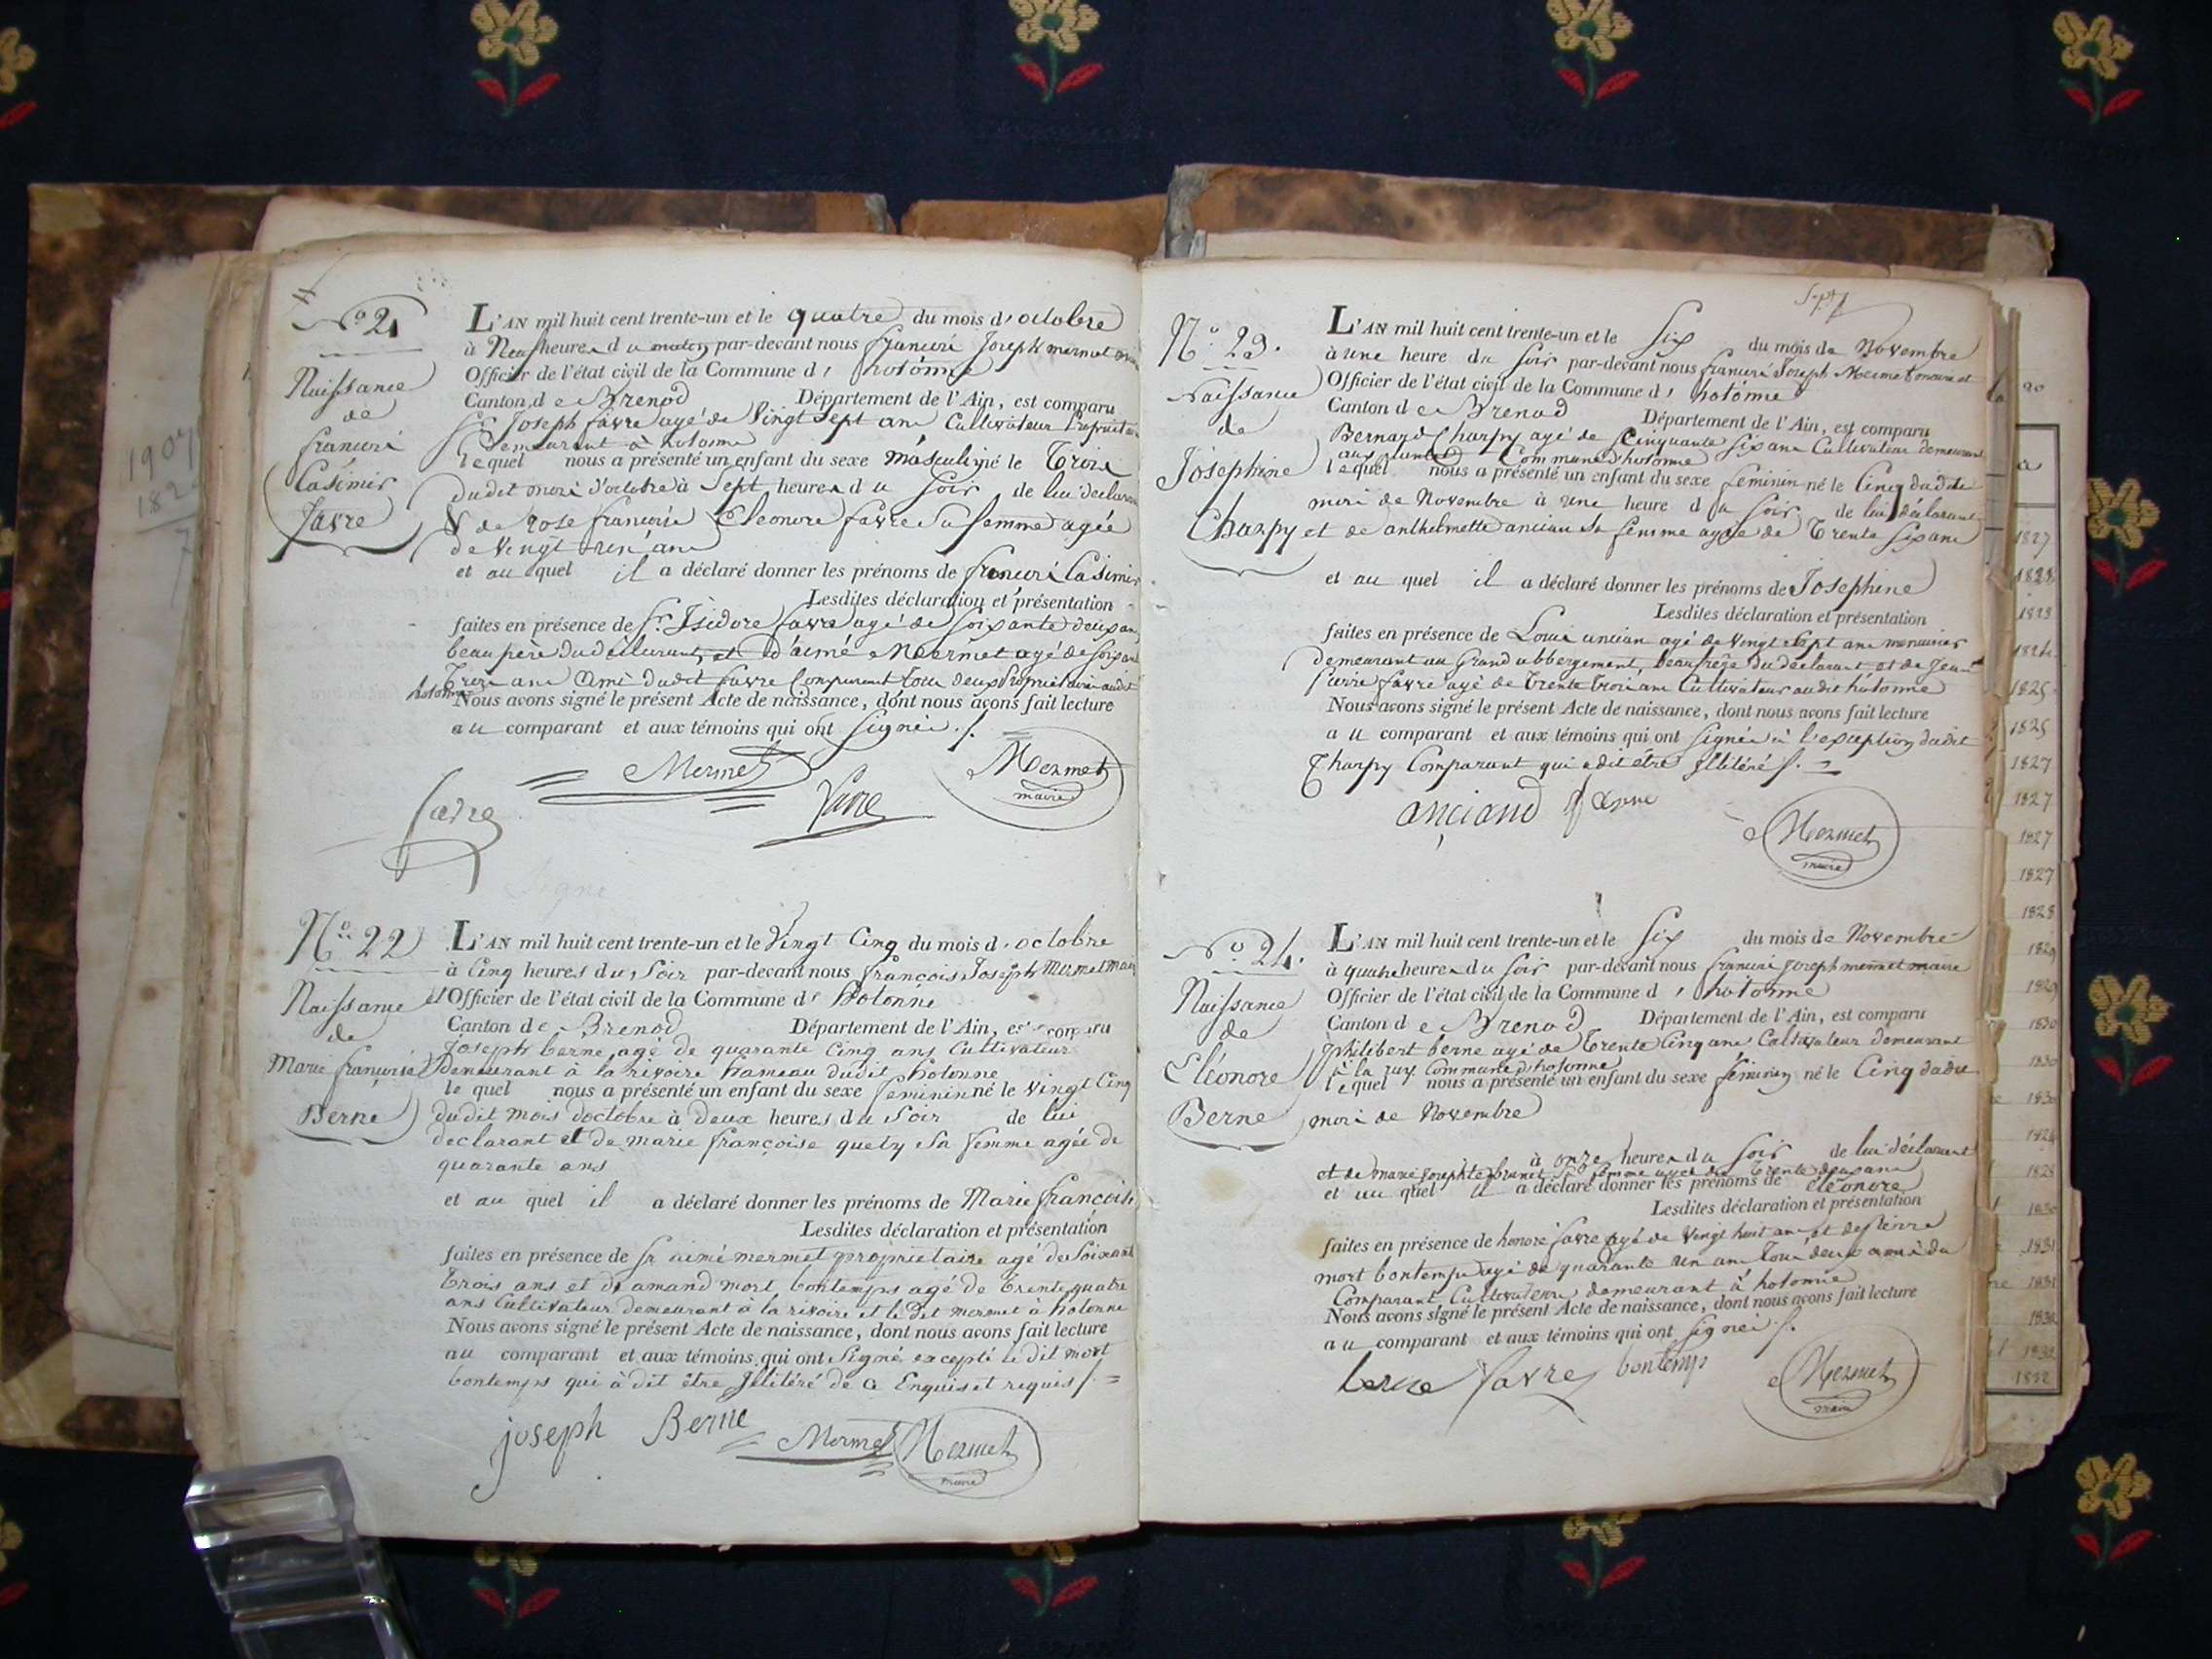 N.o 21
Naissance
de
françois
Casimir
favre
L'AN mil huit cent trente-un et le quatre du mois d'octobre
à Neuf heures du matin par-devant nous françois Joseph mermet
Officier de l'état civil de la Commune d' hotonne
Canton de Brenod Département de l'Ain, est comparu
Sr Joseph favre agé de Vingt Sept ans Cultivateur Propriétaire
demeurant à hotonne
lequel nous a présenté un enfant du sexe masculin né le Trois
dudit mois d'octobre à Sept heures du Soir de lui déclarant
& de rose françoise Eléonore favre Sa femme agée
de Vingt un ans
et au quel il a déclaré donner les prénoms de françois Casimir
Lesdites déclaration et présentation
faites en présence de Sr. Isidore favre agé de soixante deux ans
beau père du déclarant, et d'aimé Mermet agé de soixante
Trois ans ami dudit favre Comparant tous deux Propriétaires audit
hotonne
Nous avons signé le présent Acte de naissance, dont nous avons fait lecture
au comparant et aux témoins qui ont Signés ./.
Mermet
Mermet
maire
favre
favre
N.o 22
Naissance
de
Marie françoise
Berne
L'AN mil huit cent trente-un et le Vingt Cinq du mois d'octobre
à Cinq heures du Soir par-devant nous François Joseph Mermet Maire
et Officier de l'état civil de la Commune d' hotonne
Canton de Brenod Département de l'Ain, est comparu
joseph berne, agé de quarante Cinq ans Cultivateur
demeurant à la rivoire hameau dudit hotonne
le quel nous a présenté un enfant du sexe feminin né le vingt Cinq
dudit mois doctobre à deux heures du Soir de lui
declarant et de marie françoise quety Sa femme agée de
quarante ans
et au quel il a déclaré donner les prénoms de Marie françoise
Lesdites déclaration et présentation
faites en présence de Sr aimé mermet propriétaire agé de Soixante
trois ans et de amand mort bontemps agé de trente quatre
ans Cultivateur demeurant à la rivoire et ledit mermet à hotonne
Nous avons signé le présent Acte de naissance, dont nous avons fait lecture
au comparant et aux témoins qui ont Signé excepté le dit mort
bontemps qui à dit être Illitéré de ce Enquis et requis /. =
joseph Berne
Mermet
Mermet
maire
Sept
N.o 23.
Naissance
de
Josephine
Charpy
L'AN mil huit cent trente-un et le Six du mois de Novembre
à une heure du Soir par-devant nous françois Joseph Mermet maire et
Officier de l'état civil de la Commune d' hotonne
Canton de Brenod Département de l'Ain, est comparu
Bernard Charpy agé de Cinquante Six ans Cultivateur demeurant
Commune d'hotonne
lequel nous a présenté un enfant du sexe feminin né le Cinq dudit
mois de Novembre à une heure du Soir de lui déclarant
et de anthelmette ancian Sa femme agée de Trente Six ans
et au quel il a déclaré donner les prénoms de Josephine
Lesdites déclaration et présentation
faites en présence de Louis ancian agé de Vingt Sept ans menuisier
demeurant au Grand abbergement, beau frère du déclarant et de Jean
Pierre favre agé de trente trois ans Cultivateur audit hotonne
Nous avons signé le présent Acte de naissance, dont nous avons fait lecture
au comparant et aux témoins qui ont Signés à l'exception dudit
Charpy Comparant qui a dit être Illitéré /. =
anciand
favre
Mermet
maire
N.o 24.
Naissance
de
Eléonore
Berne
L'AN mil huit cent trente-un et le Six du mois de Novembre
à quatre heures du Soir par-devant nous françois Joseph mermet maire
Officier de l'état civil de la Commune d' hotonne
Canton de Brenod Département de l'Ain, est comparu
Philibert berne agé de Trente Cinq ans Cultivateur demeurant
à la Commune d'hotonne
lequel nous a présenté un enfant du sexe féminin né le Cinq dudit
mois de Novembre
à onze heures du Soir de lui déclarant
et de marie Josephte brunet Sa femme agée de trente deux ans
et au quel il a déclaré donner les prénoms de éléonore
Lesdites déclaration et présentation
faites en présence de honoré favre agé de Vingt huit ans, et de Pierre
mort bontemps agé de quarante un ans tous deux amis du
Comparant Cultivateurs demeurant à hotonne
Nous avons signé le présent Acte de naissance, dont nous avons fait lecture
au comparant et aux témoins qui ont Signés /.
berne favre bontemps
Mermet
maire
1827
1828
1823
1824
1825
1825
1827
1827
1827
1827
1828
1829
1829
1830
1830
1830
1828
1830
1831
1831
1832
1832